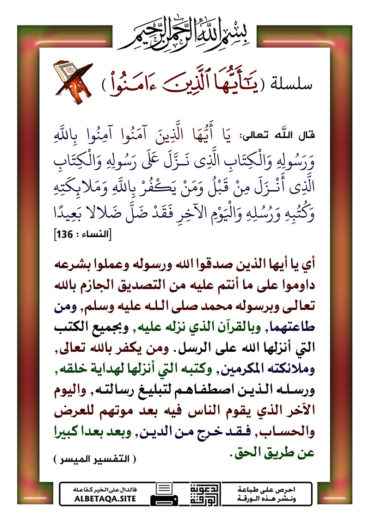 بسم الله الرحمن الرحيم
سلسلة ( يَـٰٓأَيُّهَا ٱلَّذِينَ ءَامَنُوا۟ )
قال الله تعالى: يَا أَيُّهَا الَّذِينَ آمَنُوا آمِنُوا بِاللَّهِ
وَرَسُولِهِ وَالْكِتَابِ الَّذِي نَزَّلَ عَلَى رَسُولِهِ وَالْكِتَابِ
الَّذِي أَنْزَلَ مِنْ قَبْلُ وَمَنْ يَكْفُرْ بِاللَّهِ وَمَلَائِكَتِهِ
وَكُتُبِهِ وَرُسُلِهِ وَالْيَوْمِ الْآخِرِ فَقَدْ ضَلَّ ضَلَالًا بَعِيدًا
[النساء : 136]
أي يا أيها الذين صدقوا الله ورسوله وعملوا بشرعه
داوموا على ما أنتم عليه من التصديق الجازم بالله
تعالى وبرسوله محمد صلى الله عليه وسلم, ومن
طاعتهما, وبالقرآن الذي نزله عليه, وبجميع الكتب
التي أنزلها الله على الرسل. ومن يكفر بالله تعالى,
وملائكته المكرمين, وكتبه التي أنزلها لهداية خلقه,
ورسله الذين اصطفاهم لتبليغ رسالته, واليوم
الآخر الذي يقوم الناس فيه بعد موتهم للعرض
والحساب, فقد خرج من الدين, وبعد بعدا كبيرا
عن طريق الحق.
( التفسير الميسر )
احرص على طباعة
ونشر هذه الورقة
الورقة الدعوية
فالدال على الخير كفاعله
ALBETAQA.SITE